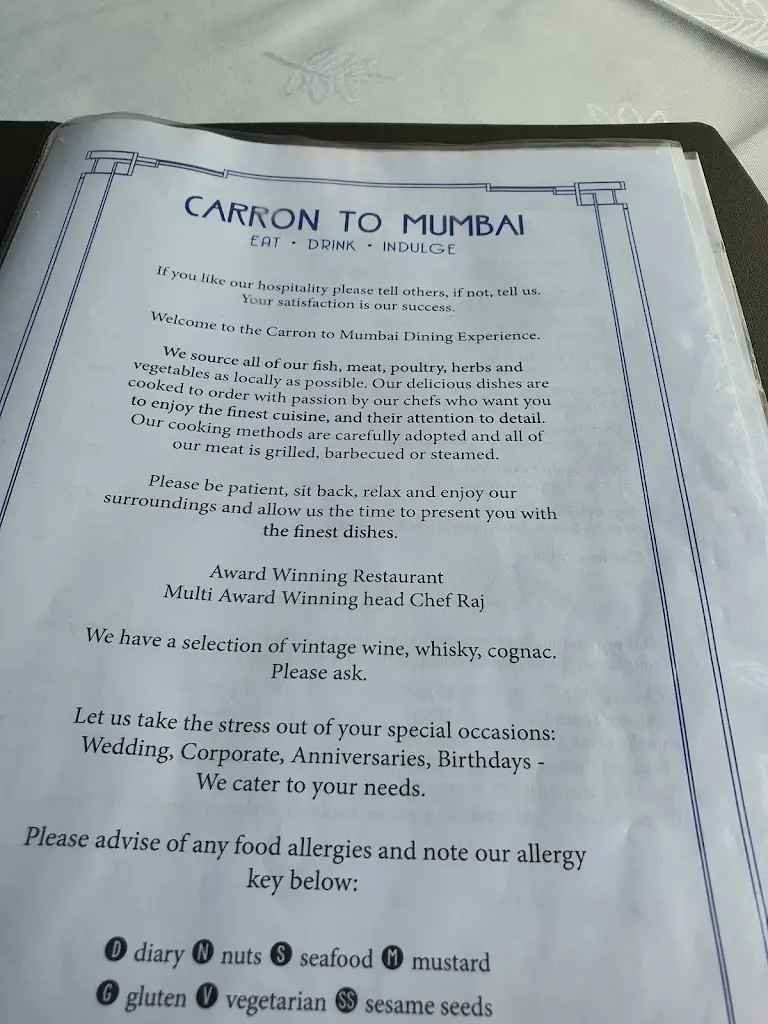 CARRON TO MUMBAI
EAT · DRINK · INDULGE
If you like our hospitality please tell others, if not, tell us.
Your satisfaction is our success.
Welcome to the Carron to Mumbai Dining Experience.
We source all of our fish, meat, poultry, herbs and
vegetables as locally as possible. Our delicious dishes are
cooked to order with passion by our chefs who want you
to enjoy the finest cuisine, and their attention to detail.
Our cooking methods are carefully adopted and all of
our meat is grilled, barbecued or steamed.
Please be patient, sit back, relax and enjoy our
surroundings and allow us the time to present you with
the finest dishes.
Award Winning Restaurant
Multi Award Winning head Chef Raj
We have a selection of vintage wine, whisky, cognac.
Please ask.
Let us take the stress out of your special occasions:
Wedding, Corporate, Anniversaries, Birthdays -
We cater to your needs.
Please advise of any food allergies and note our allergy
key below:
D diary N nuts S seafood M mustard
G gluten V vegetarian SS sesame seeds